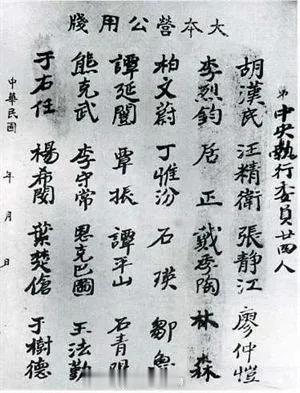 大本營公用牋
第
中央執行委員廿四人
胡漢民 汪精衛 張静江 廖仲愷
李烈鈞 居正 戴季陶 林森
柏文蔚 丁惟汾 石瑛 鄒魯
譚延闓 覃振 譚平山 石青
熊克武 李守常 恩克巴圖 王法勤
于右任 楊希閔 葉楚傖 于樹德
中華民國 年 月 日